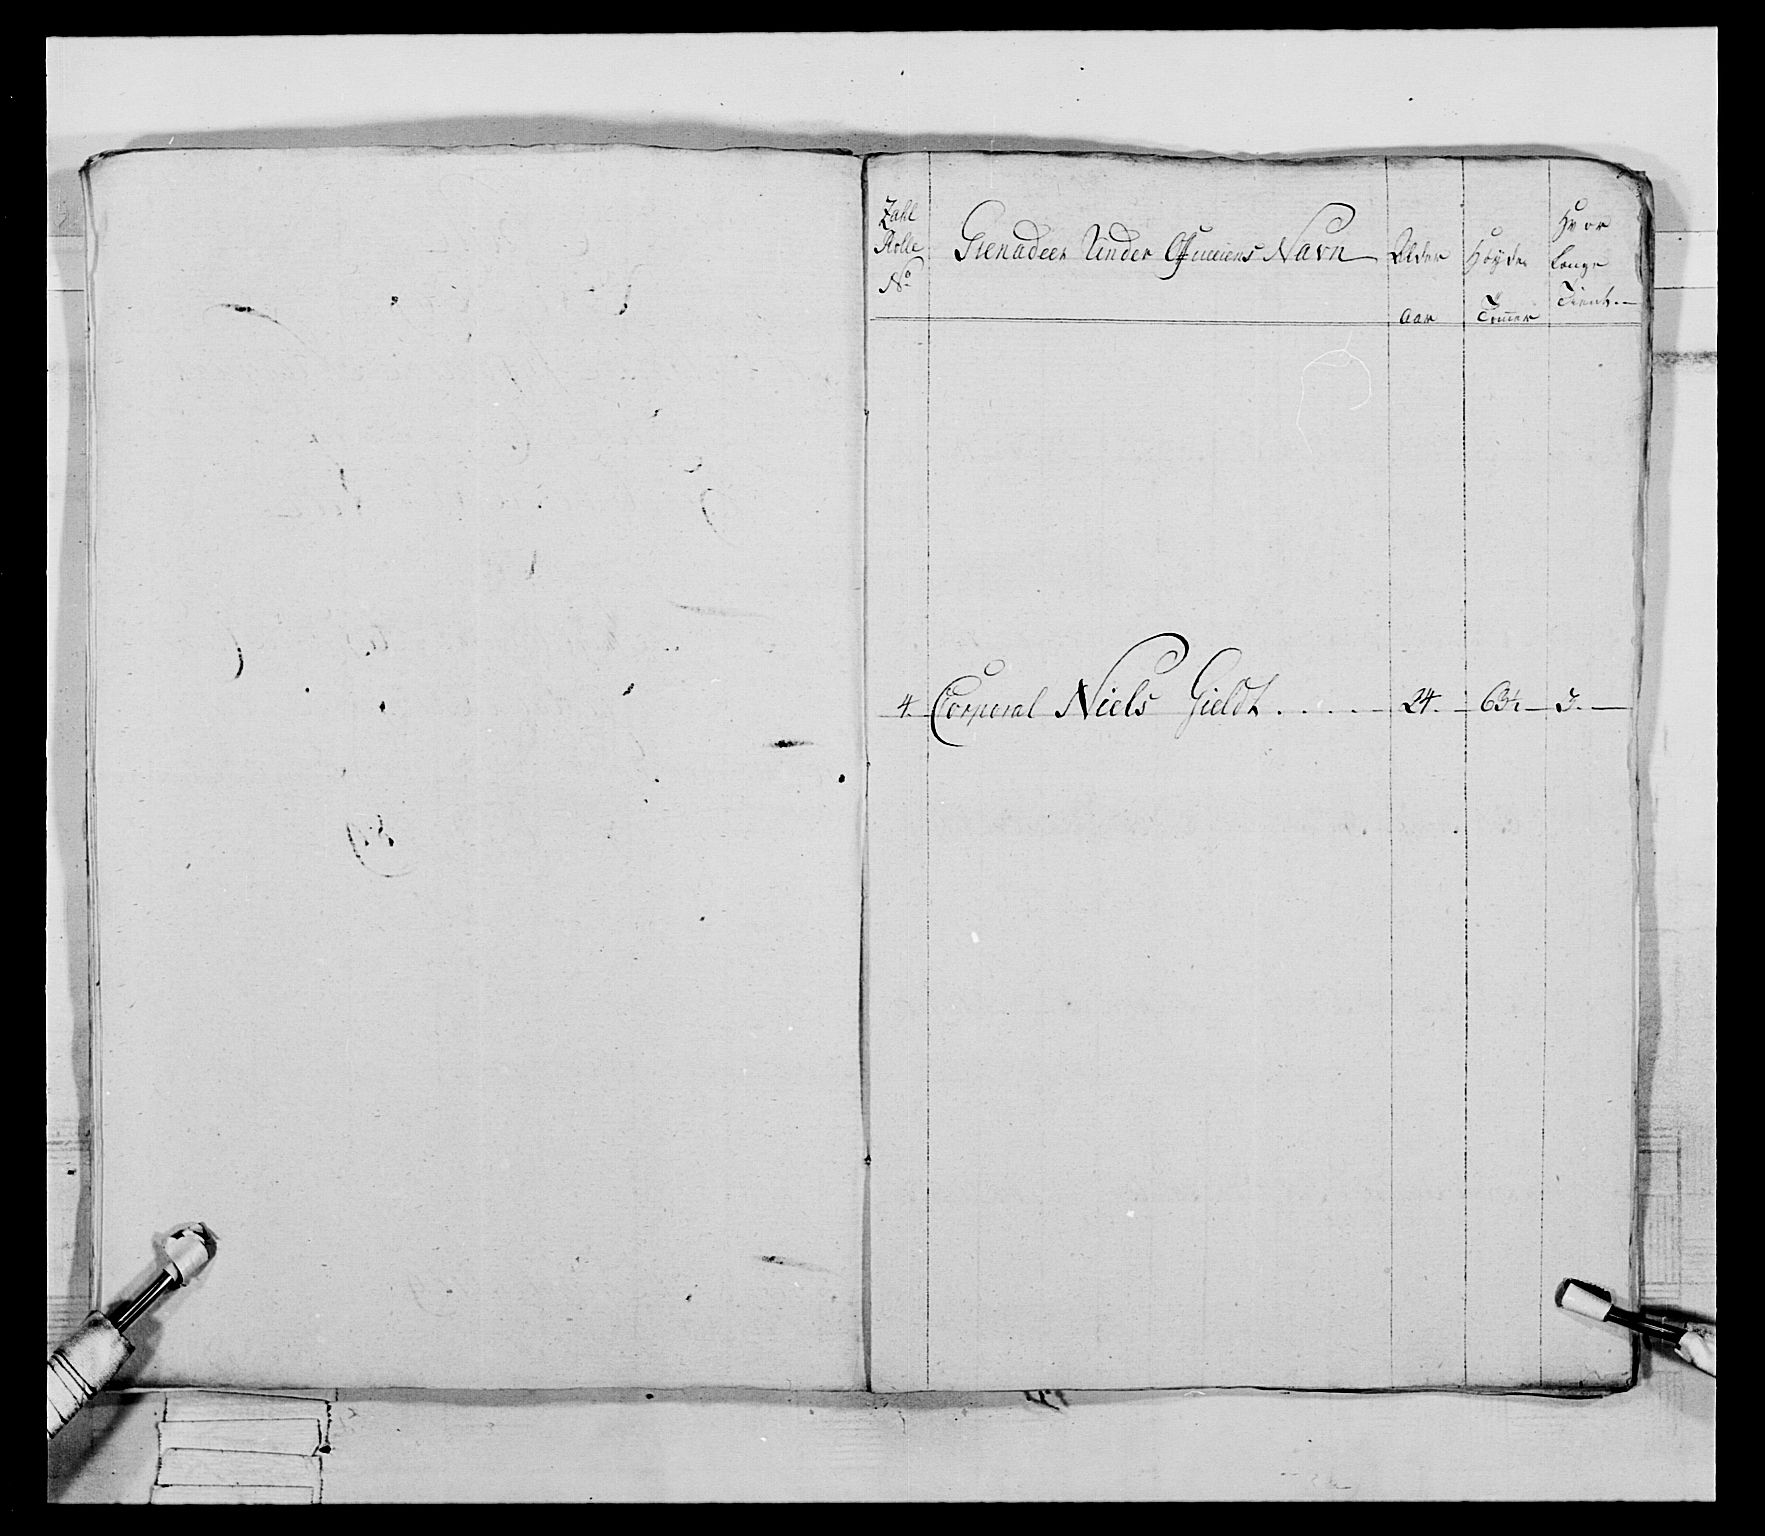 Zahl Rolle No
Grenadeer Under Officiers Navn
Alder
Aar
Høyde
Tommer
Hvor længe Tient.
4. Corporal Niels Gieldt . . . . . 24. 63½ 3.